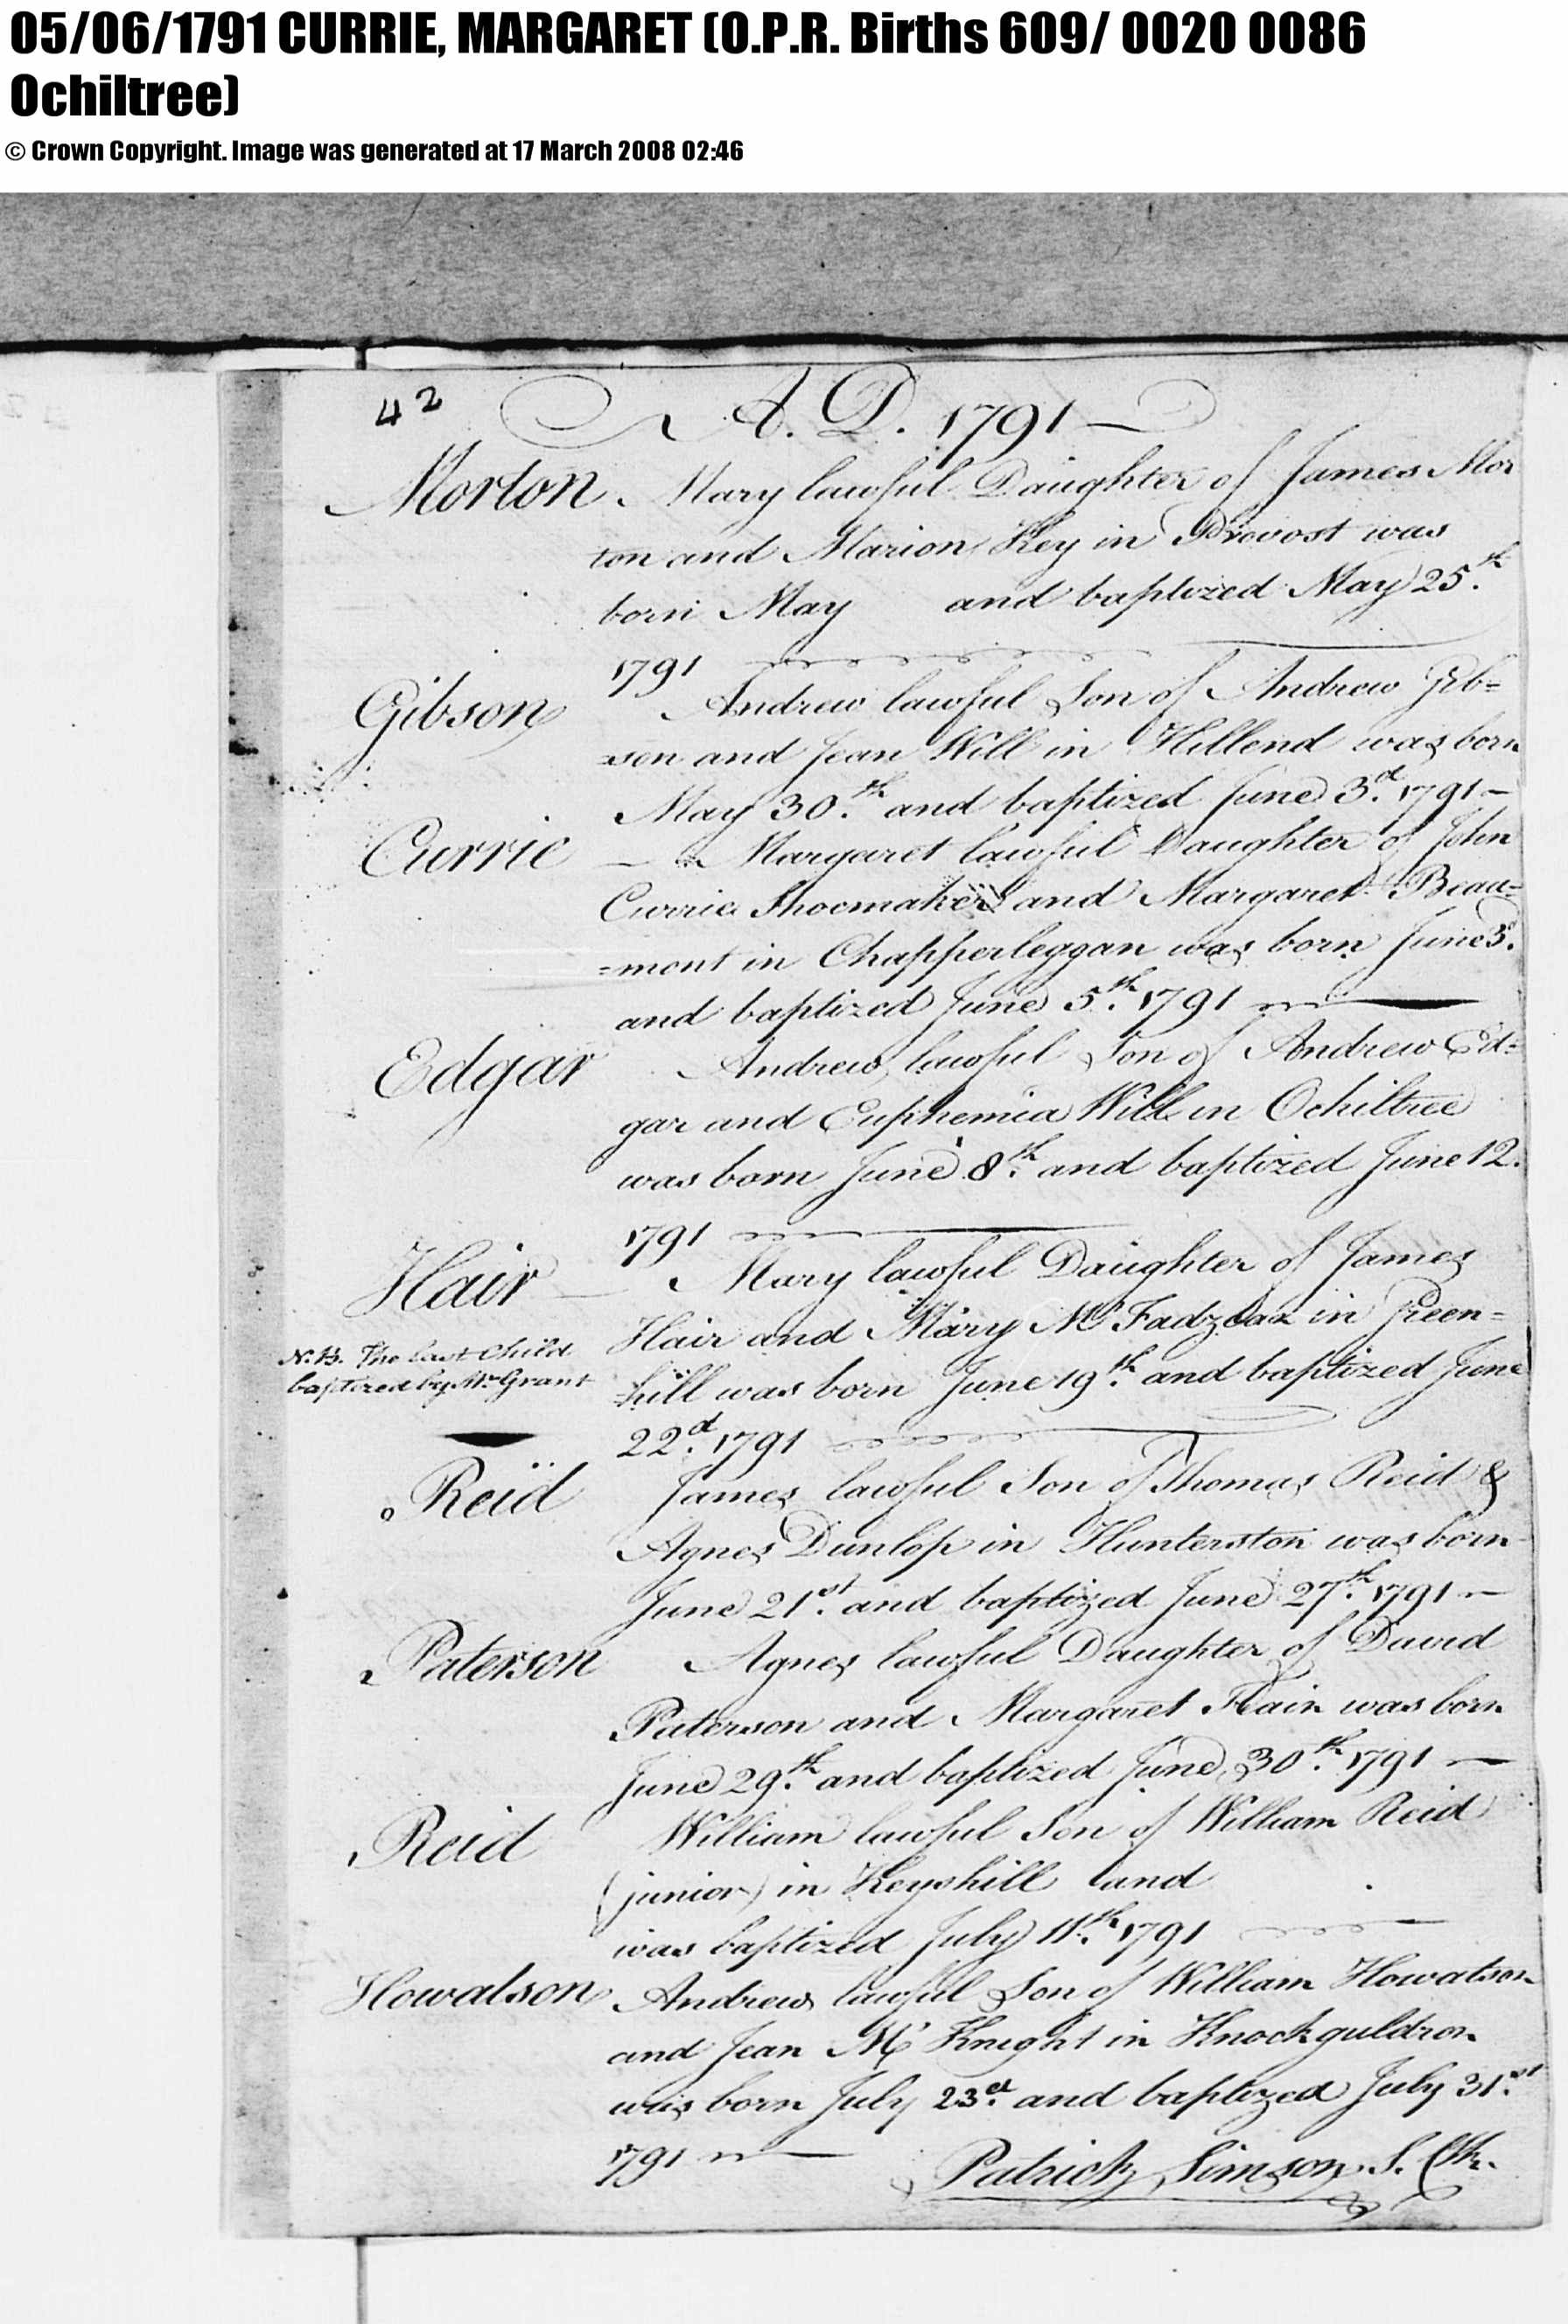 05/06/1791 CURRIE, MARGARET (O.P.R. Births 609/ 0020 0086
Ochiltree)
© Crown Copyright. Image was generated at 17 March 2008 02:46
42
A. D. 1791
Morton. Mary lawful Daughter of James Mor
ton and Marion Key in Provost was
born May and baptized May 25.th
1791
Gibson Andrew lawful Son of Andrew Gib=
=son and Jean Will in Hillend was born
May 30.th and baptized June 3.d 1791
Currie Margaret lawful Daughter of John
Currie Shoemaker and Margaret Beau=
=mont in Chapperleggan was born June 3.
and baptized June 5.th 1791
Edgar Andrew lawful Son of Andrew Ed=
gar and Euphemia Will in Ochiltree
was born June 8.th and baptized June 12.
1791
Hair Mary lawful Daughter of James
Hair and Mary Mc Fadzean in Green=
N.B. The last Child
baptized by Mr Grant
hill was born June 19.th and baptized June
22.d 1791
Reid James lawful Son of Thomas Reid &
Agnes Dunlop in Hunterston was born
June 21.st and baptized June 27.th 1791
Paterson Agnes lawful Daughter of David
Paterson and Margaret Hair was born
June 29.th and baptized June 30.th 1791
Reid William lawful Son of William Reid
(junior) in Keyshill and
was baptized July 11.th 1791
Howatson Andrew lawful Son of William Howatson
and Jean Mc Knight in Knockguldron
was born July 23.d and baptized July 31.st
1791
Patrick Simson S. Clk.